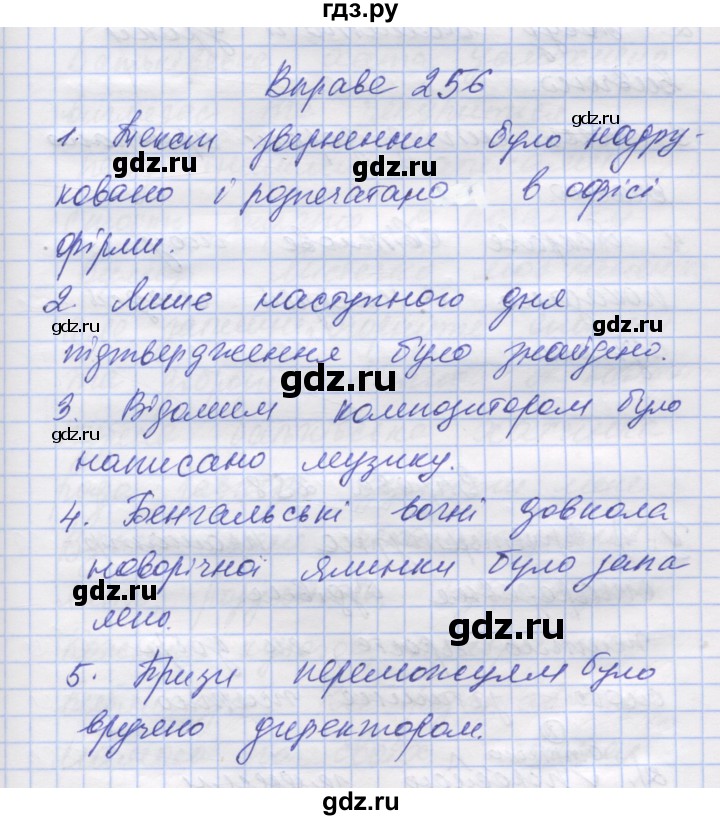 гдз.ру
Вправа 256
gdz.ru
1. Текст звернення було надру-
gdz.ru gdz.ru
ковано і розпечатано в офісі
gdz.ru
фірми.
2. Лише наступного дня
gdz.ru gdz.ru
підтвердження було знайдено.
gdz.ru
3. Відомим композитором було
gdz.ru
написано музику.
4. Бенгальські вогні довкола
новорічної ялинки було запа
gdz.ru
лено.
gdz.ru
5. Призи переможцям було
вручено директором.
gdz.ru